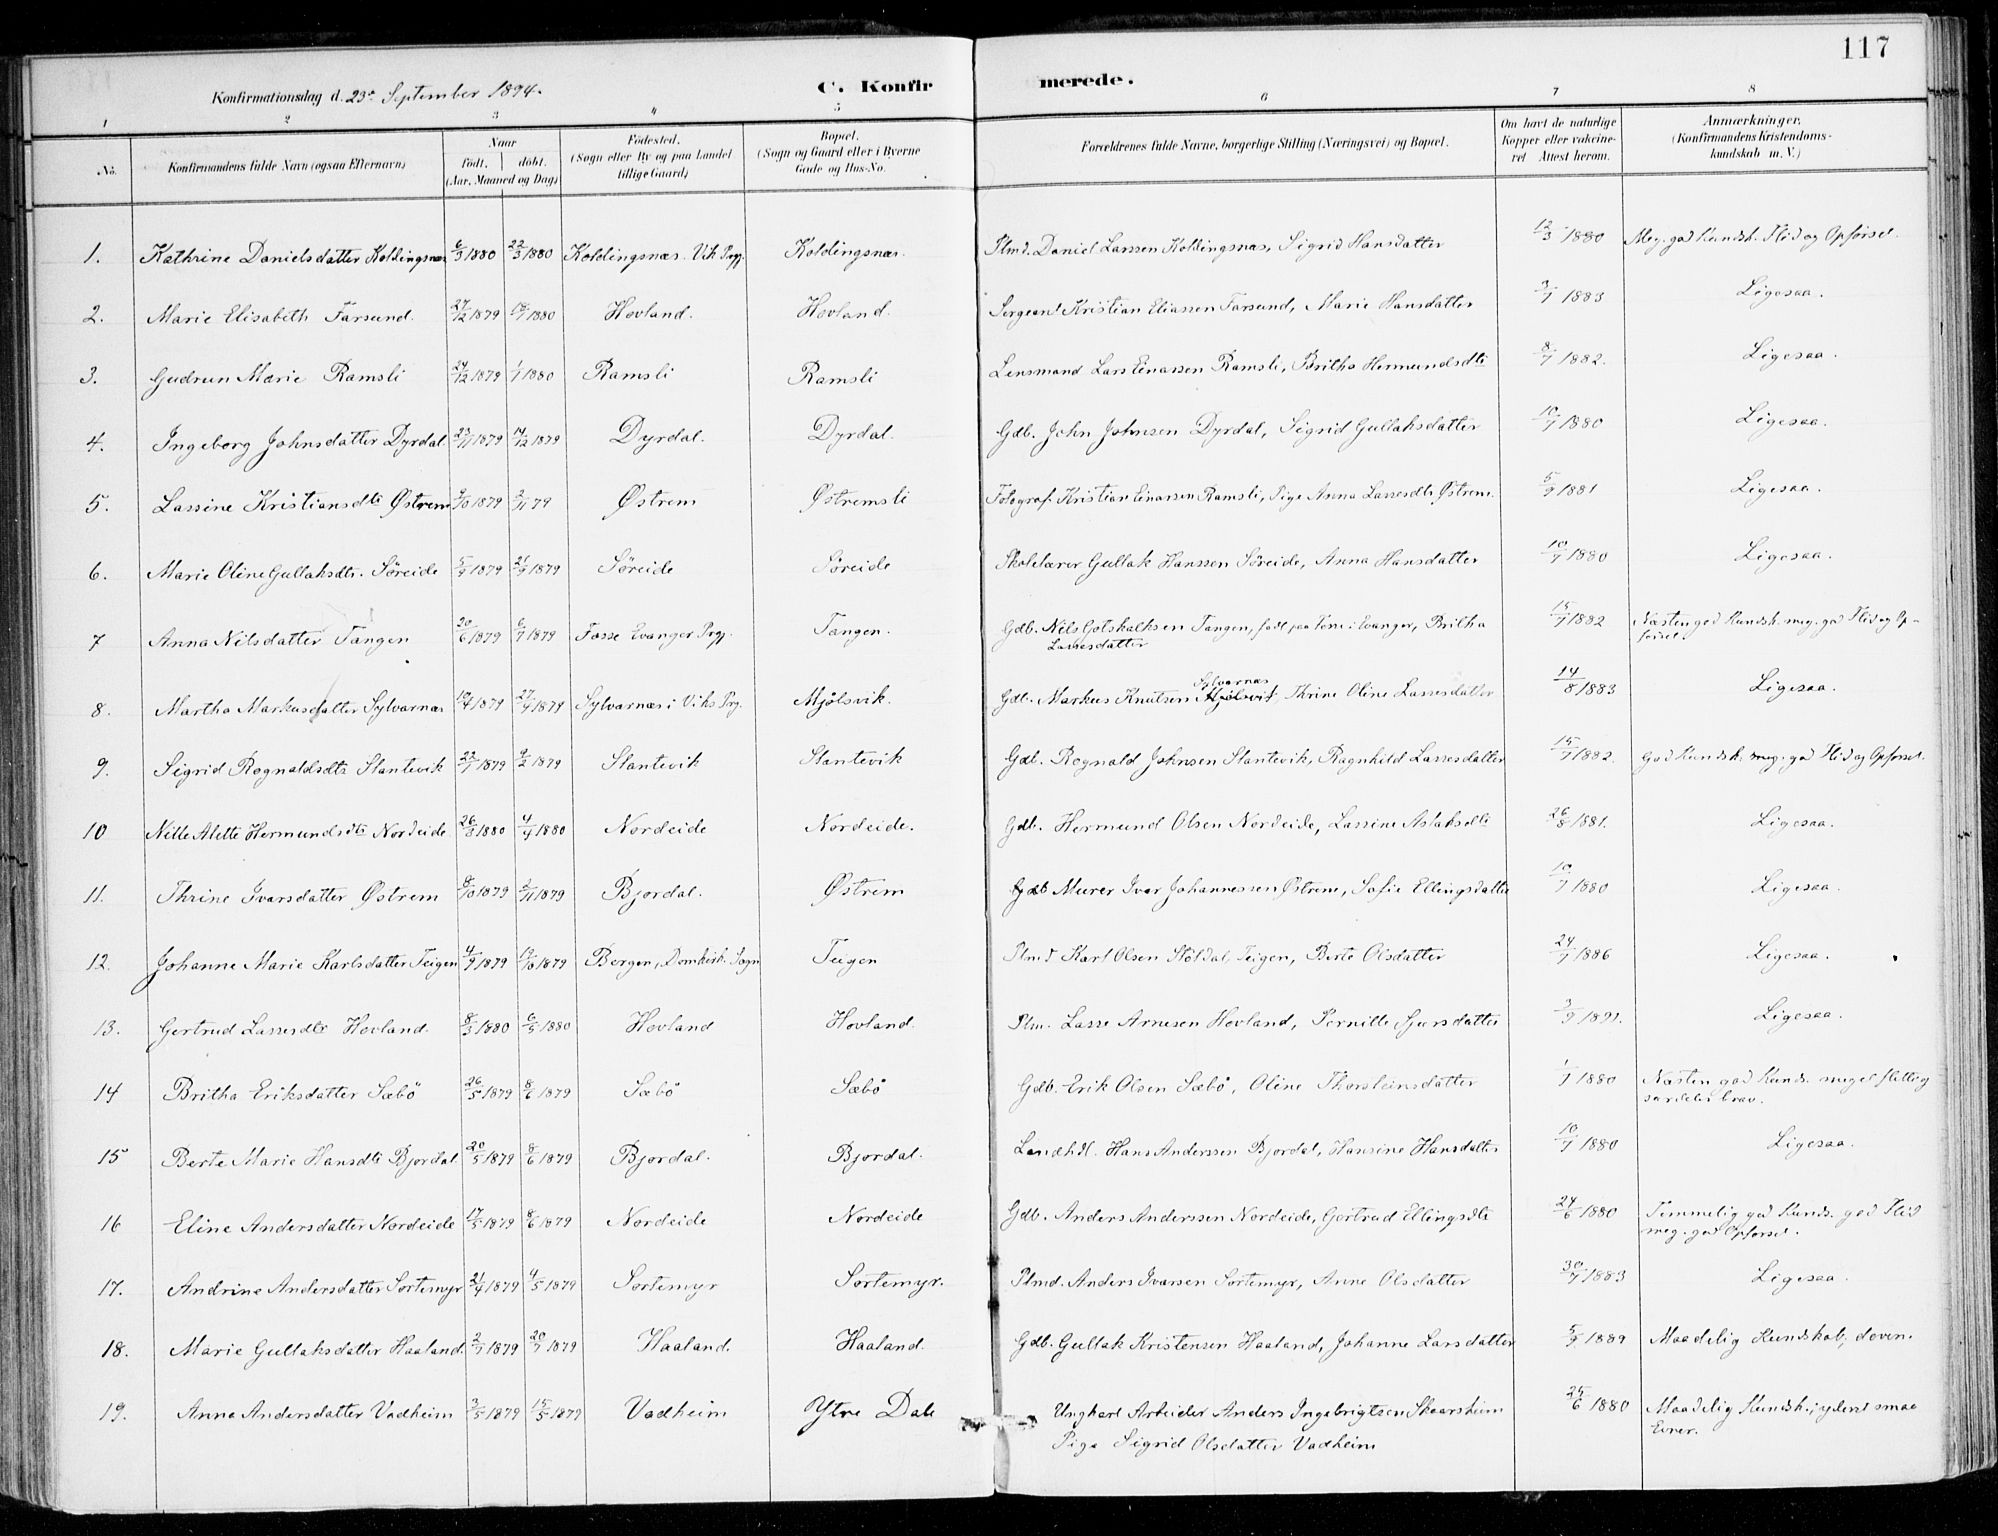 117
Konfirmationsdag d. 23de September 1894.
C. Konfirmerede.
1 2 3 4 5 6 7 8
No. Konfirmandens fulde Navn (ogsaa Efternavn) Naar født, døbt. (Aar, Maaned og Dag) Fødested. (Sogn eller By og paa Landet tillige Gaard) Bopæl. (Sogn og Gaard eller i Byerne Gade og Hus-No. Forældrenes fulde Navne, borgerlige Stilling (Næringsvei) og Bopæl. Om havt de naturlige Kopper eller vakcineret Attest herom. Anmærkninger. (Konfirmandens Kristendomskundskab m. V.)
1. Kathrine Danielsdatter Koldingsnæs 6/3 1880 22/3 1880 Koldingsnæs. Vik Prgj. Koldingsnæs. Plmd. Daniel Larssen Koldingsnæs, Sigrid Hansdatter 12/3 1880 Meg. god Kundsk. Flid og Opførsel.
2. Marie Elisabeth Farsund. 27/12 1879 18/1 1880 Hovland. Hovland. Sergeant Kristian Eliassen Farsund, Marie Hansdatter 3/7 1883 Ligesaa.
3. Gudrun Marie Ramsli 24/12 1879 1/1 1880 Ramsli Ramsli Lensmand Lars Einarssen Ramsli, Britha Hermundsdtr 8/7 1882. Ligesaa.
4. Ingeborg Johnsdatter Dyrdal. 23/11 1879 14/12 1879 Dyrdal. Dyrdal. Gdb. John Johnsen Dyrdal, Sigrid Gullaksdatter 10/7 1880 Ligesaa.
5. Lassine Kristiansdtr Østrem 9/10 1879 2/11 79 Østrem Østremsli Fotograf Kristian Einarssen Ramsli, Pige Anna Lassesdtr Østrem. 5/9 1881 Ligesaa.
6. Marie Oline Gullaksdtr. Søreide 5/9 1879 21/9 1879 Søreide Søreide Skolelærer Gullak Hanssen Søreide, Anna Hansdatter 10/7 1880 Ligesaa.
7 Anna Nilsdatter Tangen 20/6 1879 6/7 1879 Fosse Evanger Prgj. Tangen. Gdb. Nils Gotskalksen Tangen, født paa Fosse i Evanger, Britha Lassesdatter 15/7 1882 Næsten god Kundsk. meg. god Flid og Opførsel.
8. Martha Markusdatter Sylvarnæs 10/4 1879 27/4 1879 Sylvarnæs i Viks Prg. Mjølsvik. Gdb. Markus Knutsen Mjølsvik Sylvarnæs, Thrine Oline Lassesdatter 14/8 1883 Ligesaa.
9. Sigrid Rognaldsdtr Slantevik 22/1 1879 9/2 1879 Slantevik Slantevik Gdb. Rognald Johnsen Slantevik, Ragnhild Lassesdatter 15/7 1882. God Kundsk. meg. god Flid og Opførsel.
10 Nille Alette Hermundsdtr Nordeide 26/3 1880 4/4 1880 Nordeide Nordeide. Gdb. Hermund Olsen Nordeide, Lassine Aslaksdtr 26/8 1881. Ligesaa.
11. Thrine Ivarsdatter Østrem 8/10 1879 2/11 1879 Bjordal. Østrem Gdb Murer Ivar Johannessen Østrem, Sofie Ellingsdatter 10/7 1880 Ligesaa.
12. Johanne Marie Karlsdatter Teigen 4/9 1879 19/10 1879 Bergen, Domkirk. Sogn Teigen Plmd Karl Olsen Støldal Teigen, Berte Olsdatter 24/7 1886 Ligesaa.
13. Gertrud Lassesdtr Hovland. 8/3 1880 6/5 1880 Hovland Hovland. Plm. Lasse Arnesen Hovland, Pernille Sjursdatter 3/9 1891. Ligesaa.
14 Britha Eriksdatter Sæbø 26/5 1879 8/6 1879 Sæbø Sæbø Gdb. Erik Olsen Sæbø, Oline Thorsteinsdatter 1/7 1880 Næsten god Kunds. meget flittig særdeles brav.
15 Berte Marie Hansdtr Bjordal 20/5 1879 8/6 1879 Bjordal. Bjordal. Landhdl. Hans Anderssen Bjordal, Hansine Hansdatter 10/7 1880 Ligesaa.
16 Eline Andersdatter Nordeide 17/5 1879 8/6 1879 Nordeide Nordeide Gdb. Anders Anderssen Nordeide, Gertrud Ellingsdtr 24/6 1880 Temmelig god Kunds. god Flid meg. god Opførsel.
17. Andrine Andersdatter Sortemyr 21/4 1879 4/5 1879 Sortemyr Sortemyr. Plmd. Anders Ivarsen Sortemyr, Anne Olsdatter 30/7 1883 Ligesaa.
18. Marie Gullaksdatter Haaland. 2/7 1879 20/7 1879 Haaland. Haaland. Gdb. Gullak Kristensen Haaland, Johanne Larsdatter 5/9 1889 Maadelig Kundskab; doven.
19. Anna Andersdatter Vadheim 3/5 1879 15/5 1879 Vadheim Ytre Dale Ungkarl Arbeider Anders Ingebrigtsen Skaarsheim Pige Sigrid Olsdatter Vadheim 25/6 1880 Maadelig Kundsk.; yderst smaa Evner.